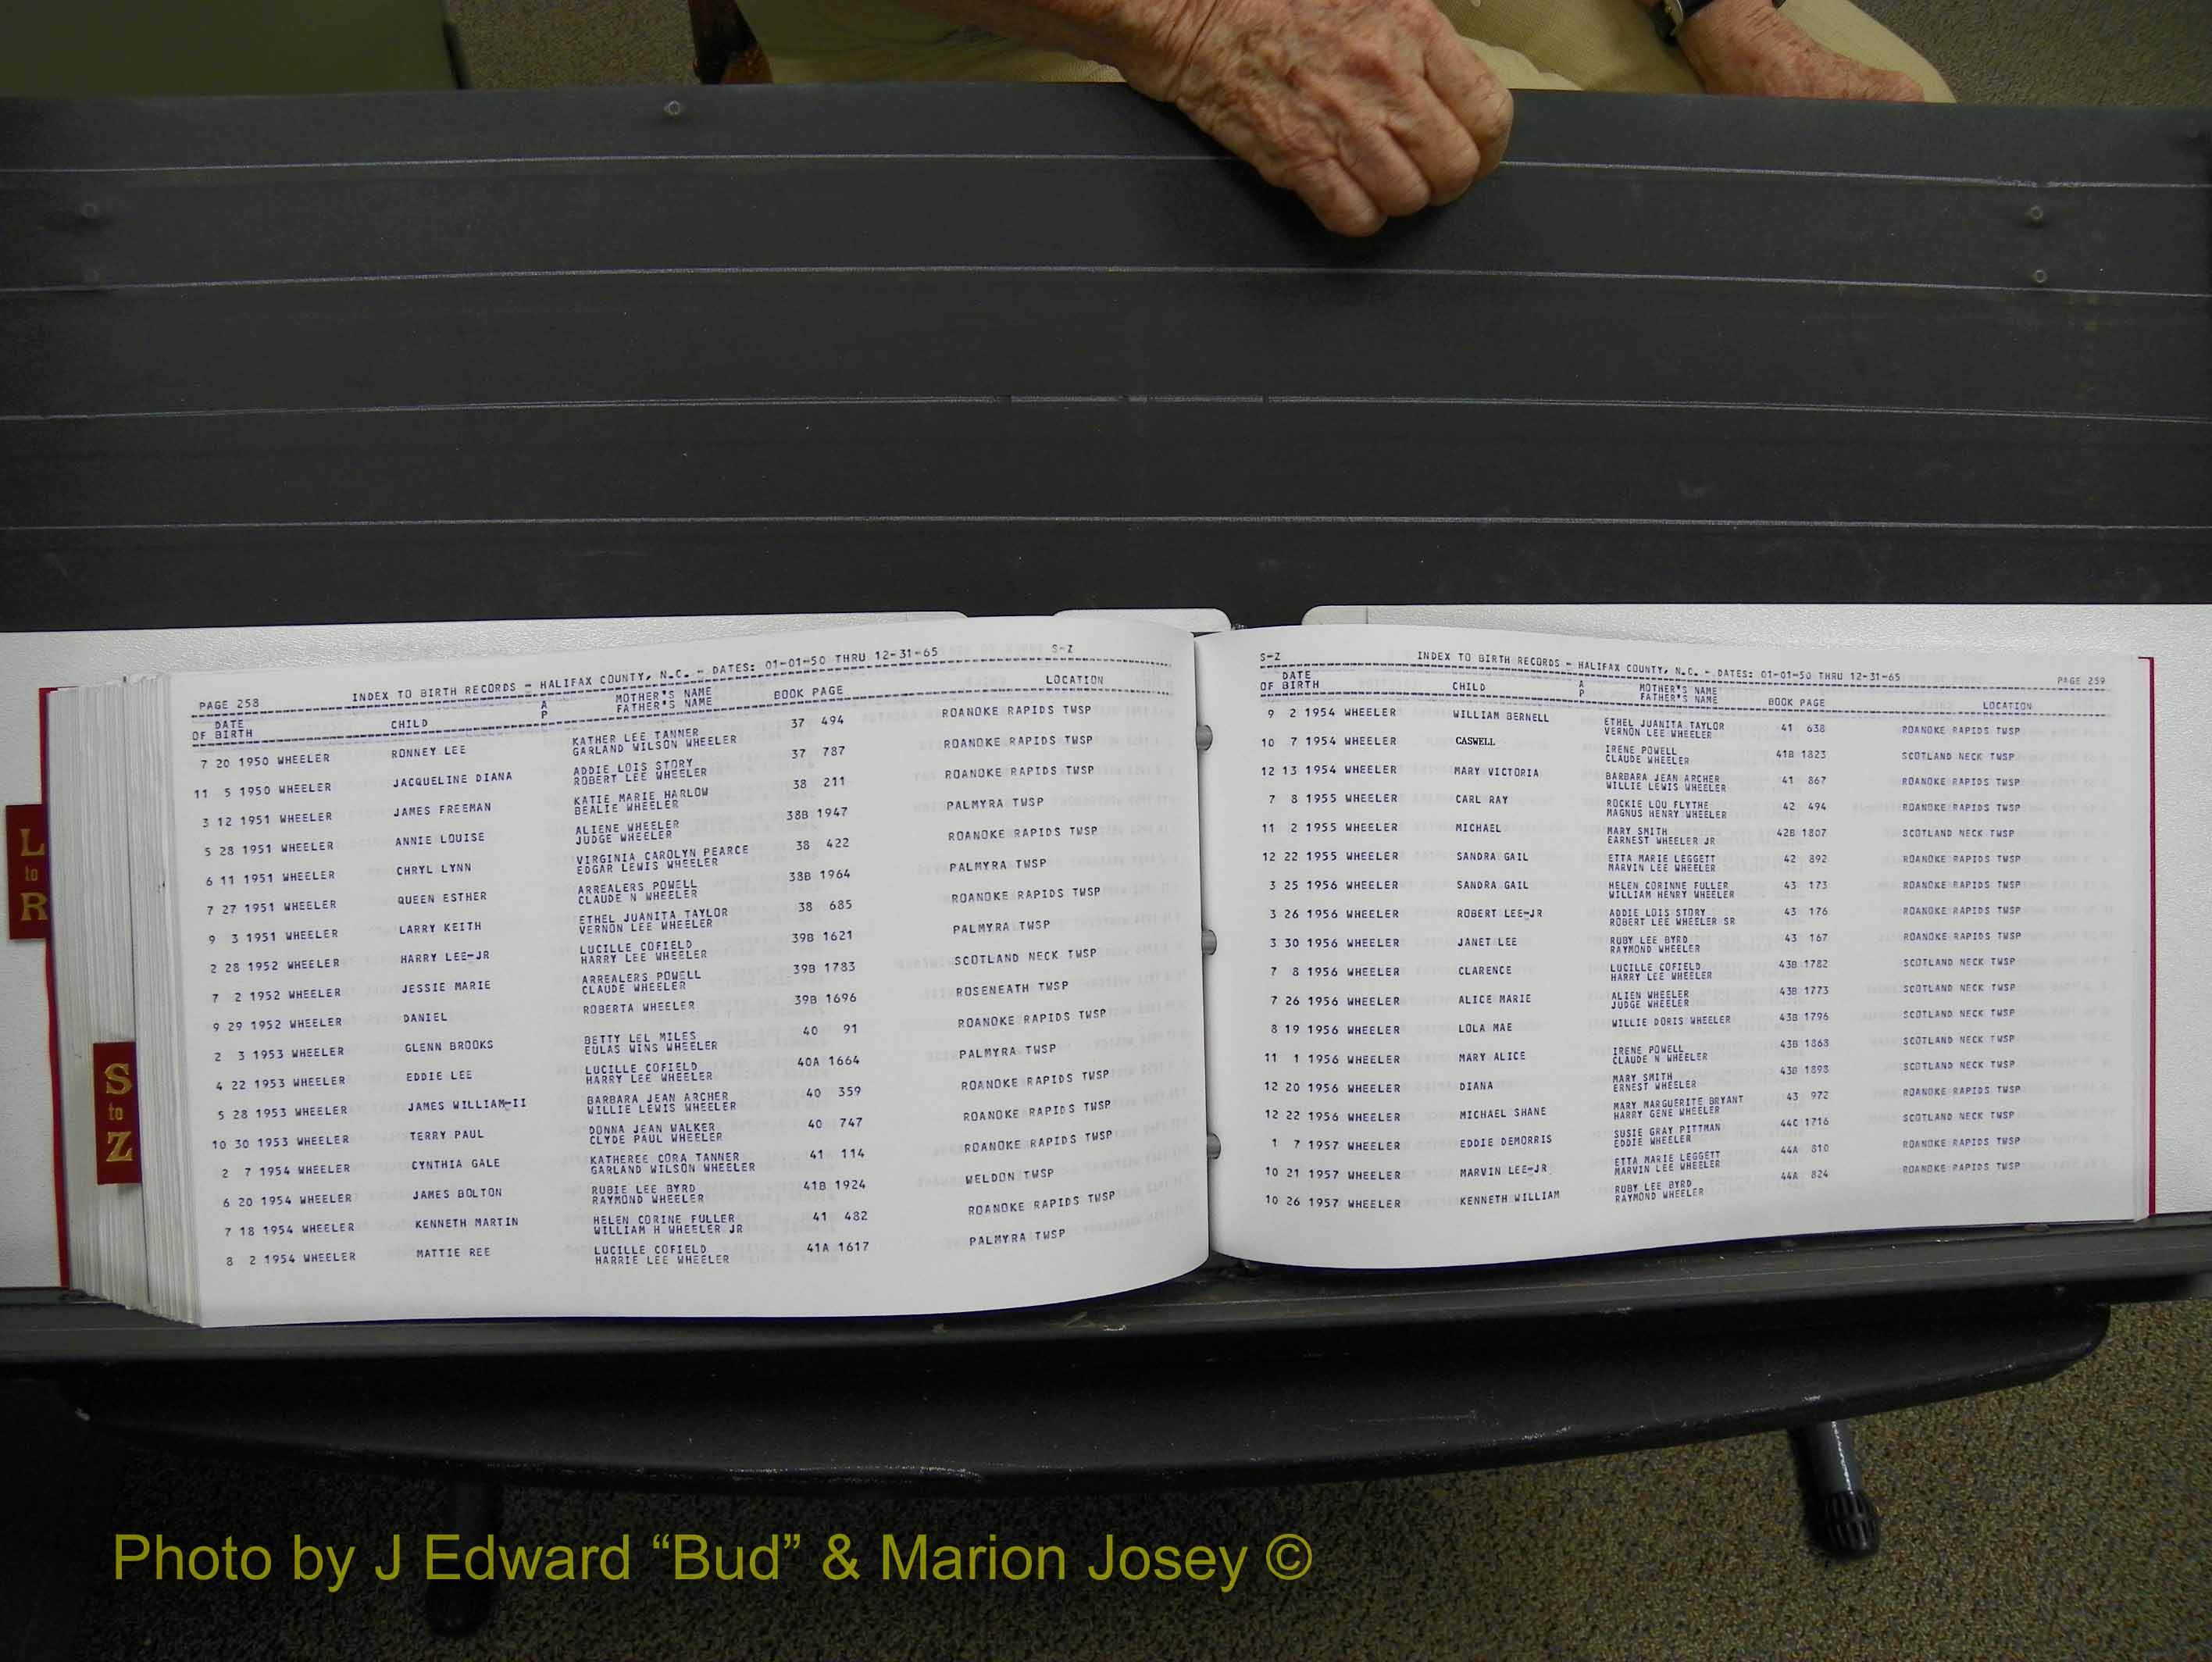 L
to
R
S
to
Z
PAGE 258 INDEX TO BIRTH RECORDS - HALIFAX COUNTY, N.C. - DATES: 01-01-50 THRU 12-31-65 S-Z
DATE OF BIRTH CHILD A P MOTHER'S NAME FATHER'S NAME BOOK PAGE LOCATION
7 20 1950 WHEELER RONNEY LEE KATHER LEE TANNER 37 494 ROANOKE RAPIDS TWSP
GARLAND WILSON WHEELER
11 5 1950 WHEELER JACQUELINE DIANA ADDIE LOIS STORY 37 787 ROANOKE RAPIDS TWSP
ROBERT LEE WHEELER
3 12 1951 WHEELER JAMES FREEMAN KATIE MARIE HARLOW 38 211 ROANOKE RAPIDS TWSP
BEALIE WHEELER
5 28 1951 WHEELER ANNIE LOUISE ALIENE WHEELER 38B 1947 PALMYRA TWSP
JUDGE WHEELER
6 11 1951 WHEELER CHRYL LYNN VIRGINIA CAROLYN PEARCE 38 422 ROANOKE RAPIDS TWSP
EDGAR LEWIS WHEELER
7 27 1951 WHEELER QUEEN ESTHER ARREALERS POWELL 38B 1964 PALMYRA TWSP
CLAUDE N WHEELER
9 3 1951 WHEELER LARRY KEITH ETHEL JUANITA TAYLOR 38 685 ROANOKE RAPIDS TWSP
VERNON LEE WHEELER
2 28 1952 WHEELER HARRY LEE-JR LUCILLE COFIELD 39B 1621 PALMYRA TWSP
HARRY LEE WHEELER
7 2 1952 WHEELER JESSIE MARIE ARREALERS POWELL 39B 1783 SCOTLAND NECK TWSP
CLAUDE WHEELER
9 29 1952 WHEELER DANIEL ROBERTA WHEELER 39B 1696 ROSENEATH TWSP
2 3 1953 WHEELER GLENN BROOKS BETTY LEL MILES 40 91 ROANOKE RAPIDS TWSP
EULAS WINS WHEELER
4 22 1953 WHEELER EDDIE LEE LUCILLE COFIELD 40A 1664 PALMYRA TWSP
HARRY LEE WHEELER
5 28 1953 WHEELER JAMES WILLIAM-II BARBARA JEAN ARCHER 40 359 ROANOKE RAPIDS TWSP
WILLIE LEWIS WHEELER
10 30 1953 WHEELER TERRY PAUL DONNA JEAN WALKER 40 747 ROANOKE RAPIDS TWSP
CLYDE PAUL WHEELER
2 7 1954 WHEELER CYNTHIA GALE KATHEREE CORA TANNER 41 114 ROANOKE RAPIDS TWSP
GARLAND WILSON WHEELER
6 20 1954 WHEELER JAMES BOLTON RUBIE LEE BYRD 41B 1924 WELDON TWSP
RAYMOND WHEELER
7 18 1954 WHEELER KENNETH MARTIN HELEN CORINE FULLER 41 482 ROANOKE RAPIDS TWSP
WILLIAM H WHEELER JR
8 2 1954 WHEELER MATTIE REE LUCILLE COFIELD 41A 1617 PALMYRA TWSP
HARRIE LEE WHEELER
S-Z INDEX TO BIRTH RECORDS - HALIFAX COUNTY, N.C. - DATES: 01-01-50 THRU 12-31-65 PAGE 259
DATE OF BIRTH CHILD A P MOTHER'S NAME FATHER'S NAME BOOK PAGE LOCATION
9 2 1954 WHEELER WILLIAM BERNELL ETHEL JUANITA TAYLOR 41 638 ROANOKE RAPIDS TWSP
VERNON LEE WHEELER
10 7 1954 WHEELER CASWELL IRENE POWELL 41B 1823 SCOTLAND NECK TWSP
CLAUDE WHEELER
12 13 1954 WHEELER MARY VICTORIA BARBARA JEAN ARCHER 41 867 ROANOKE RAPIDS TWSP
WILLIE LEWIS WHEELER
7 8 1955 WHEELER CARL RAY ROCKIE LOU FLYTHE 42 494 ROANOKE RAPIDS TWSP
MAGNUS HENRY WHEELER
11 2 1955 WHEELER MICHAEL MARY SMITH 42B 1807 SCOTLAND NECK TWSP
EARNEST WHEELER JR
12 22 1955 WHEELER SANDRA GAIL ETTA MARIE LEGGETT 42 892 ROANOKE RAPIDS TWSP
MARVIN LEE WHEELER
3 25 1956 WHEELER SANDRA GAIL HELEN CORINNE FULLER 43 173 ROANOKE RAPIDS TWSP
WILLIAM HENRY WHEELER
3 26 1956 WHEELER ROBERT LEE-JR ADDIE LOIS STORY 43 176 ROANOKE RAPIDS TWSP
ROBERT LEE WHEELER SR
3 30 1956 WHEELER JANET LEE RUBY LEE BYRD 43 167 ROANOKE RAPIDS TWSP
RAYMOND WHEELER
7 8 1956 WHEELER CLARENCE LUCILLE COFIELD 43B 1782 SCOTLAND NECK TWSP
HARRY LEE WHEELER
7 26 1956 WHEELER ALICE MARIE ALIEN WHEELER 43B 1773 SCOTLAND NECK TWSP
JUDGE WHEELER
8 19 1956 WHEELER LOLA MAE WILLIE DORIS WHEELER 43B 1796 SCOTLAND NECK TWSP
11 1 1956 WHEELER MARY ALICE IRENE POWELL 43B 1868 SCOTLAND NECK TWSP
CLAUDE N WHEELER
12 20 1956 WHEELER DIANA MARY SMITH 43B 1898 SCOTLAND NECK TWSP
ERNEST WHEELER
12 22 1956 WHEELER MICHAEL SHANE MARY MARGUERITE BRYANT 43 972 ROANOKE RAPIDS TWSP
HARRY GENE WHEELER
1 7 1957 WHEELER EDDIE DEMORRIS SUSIE GRAY PITTMAN 44C 1716 SCOTLAND NECK TWSP
EDDIE WHEELER
10 21 1957 WHEELER MARVIN LEE-JR ETTA MARIE LEGGETT 44A 810 ROANOKE RAPIDS TWSP
MARVIN LEE WHEELER
10 26 1957 WHEELER KENNETH WILLIAM RUBY LEE BYRD 44A 824 ROANOKE RAPIDS TWSP
RAYMOND WHEELER
Photo by J Edward “Bud” & Marion Josey ©